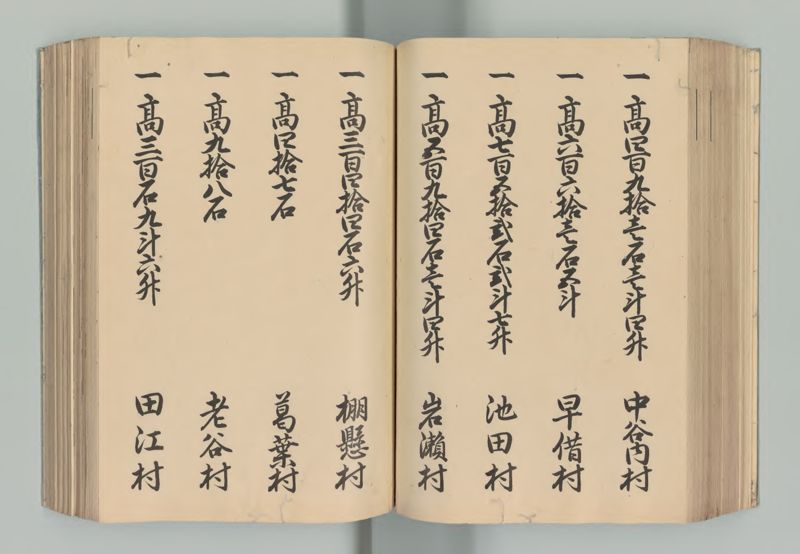 一 高四百九拾壱石壱斗四升 中谷内村
一 高六百六拾壱石五斗 早借村
一 高七百五拾弐石弐斗七升 池田村
一 高五百九拾四石壱斗四升 岩瀬村
一 高三百四拾四石六升 棚懸村
一 高四拾七石 葛葉村
一 高九拾八石 老谷村
一 高三百石九斗六升 田江村